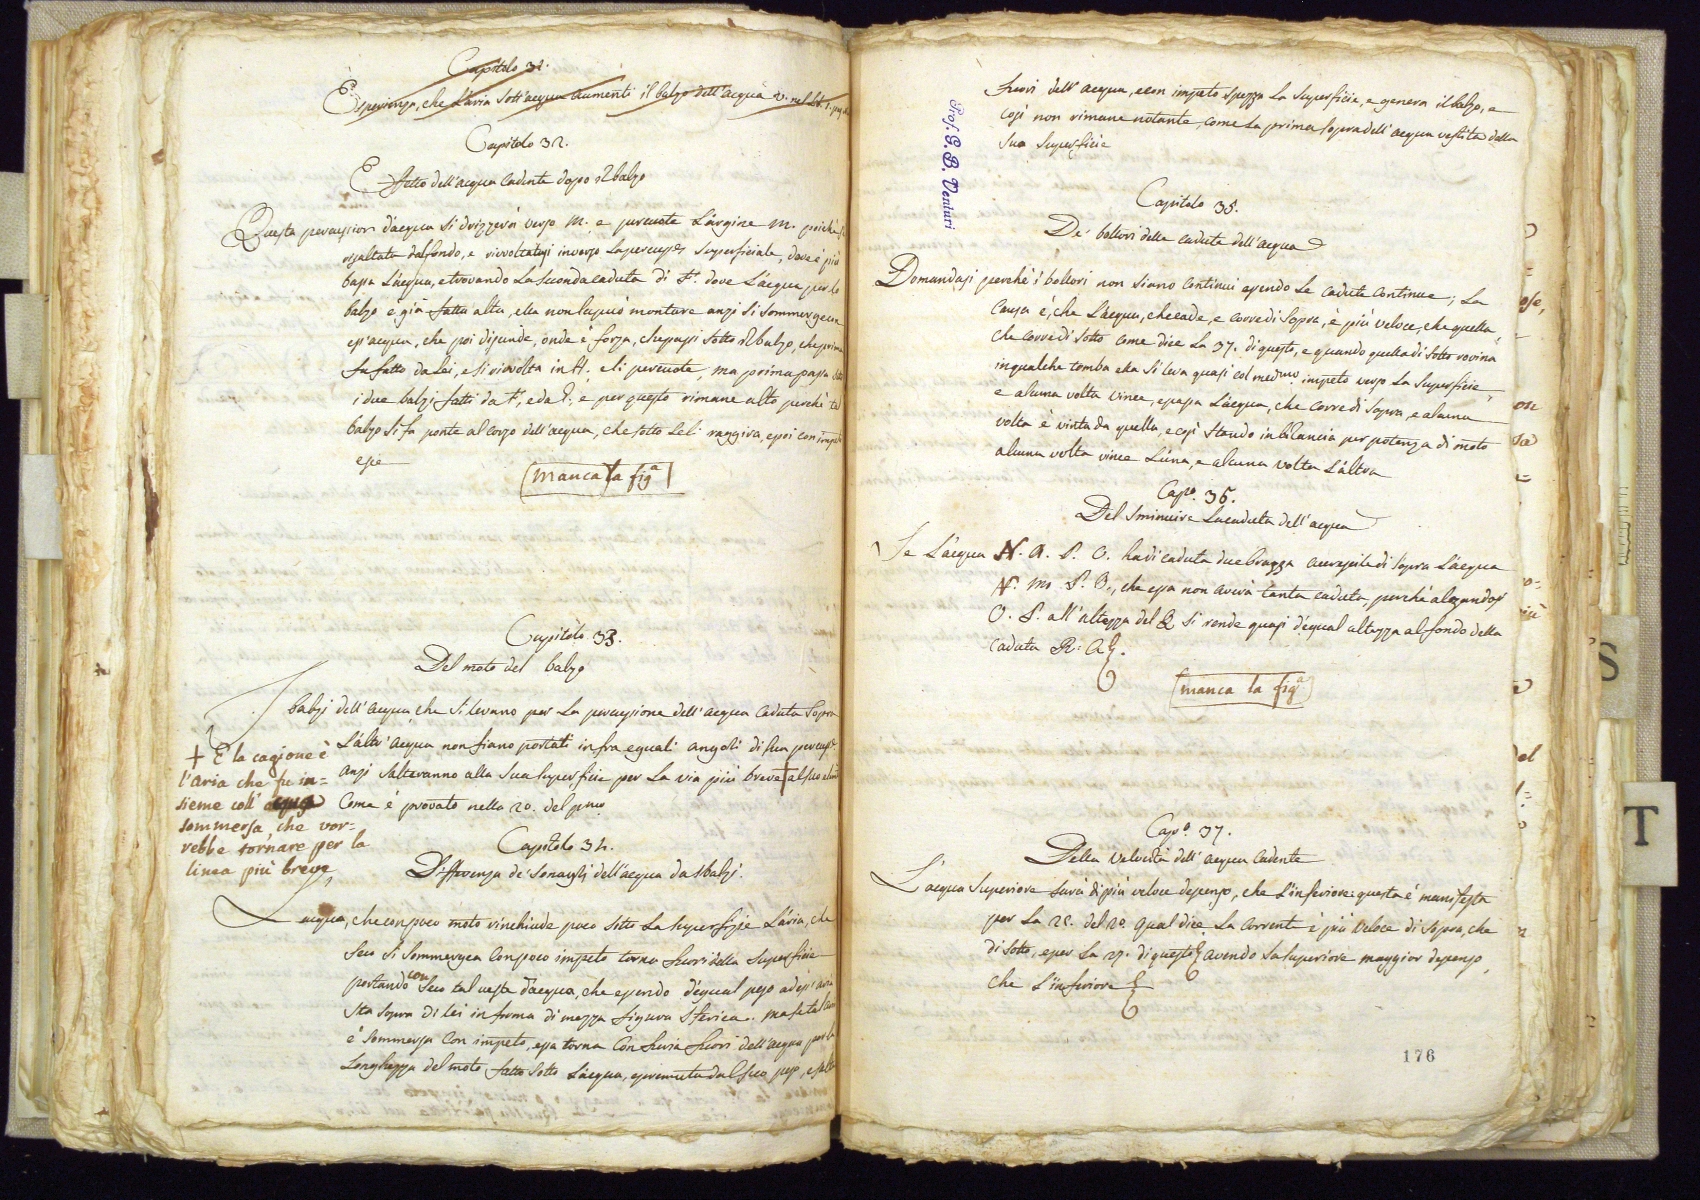 Capitolo 31.
Esperienza, che l'aria sott'acqua aumenti il balzo dell'acqua V. nel Lib. 1. pag.
Capitolo 32.
Effetto dell'acqua cadente dopo il balzo
Questa percussion d'acqua si drizzerà verso M. e percuote l'argine M. poichè
risaltata dal fondo, e rivoltatasi inverso la percuss. superficiale, dove è più
bassa l'acqua, e trovando la seconda caduta di F. dove l'acqua per lo
balzo è già fatta alta, ella non la può montare anzi si sommerge con
ess'acqua, che poi discende, onde è forza, che passi sotto il balzo, che prima
fu fatto da lei, e si rivolta in H. e lì percuote, ma prima passa sotto
i due balzi fatti da F, e da e per questo rimane alto perchè tal
balzo si fa ponte al corso dell'acqua, che sotto se li raggira, e poi con
esce
manca la fig.a
Capitolo 33.
Del moto del balzo
I balzi dell'acqua che si levano per la percussione dell'acqua caduta sopra
l'altr'acqua non fiano portati infra eguali angoli di sua percuss.
anzi salteranno alla sua superficie per la via più breve + al suo
Come è provato nella 20. del pmo
+ E la cagione è
l'aria che fu in=
sieme coll' acqua
sommersa, che vor=
rebbe tornare per la
linea più breve
Capitolo 34.
Differenza de' sonagli dell'acqua da i balzi.
L'acqua, che con poco moto rinchiude poco sotto la superfizie l'aria, che
seco si sommergea con poco impeto torna fuori della superficie
portando con seco tal veste d'acqua, che essendo d'equal peso ad essa aria
sta sopra di lei in forma di mezza figura sferica. ma se tal
è sommersa con impeto, essa torna con furia fuori dell'acqua per la
longhezza del moto fatto sotto l'acqua, e premuta dal suo peso, e
Prof. G. B. Venturi
fuori dell'acqua, con impeto spezza la superficie, e genera il balzo, e
così non rimane notante, come la prima sopra dell'acqua vestita della
sua superficie
Capitolo 35.
De' bollori delle cadute dell'acqua
Domandasi perchè i bollori non siano continui essendo le cadute continue; La
causa è, che l'acqua, che cade, e corre di sopra, è più veloce, che quella
che corre di sotto come dice la 37. di questo, e quando quella di sotto rovina
in qualche tomba ella si leva quasi col medmo impeto verso la superficie,
e alcuna volta vince, e passa l'acqua, che corre di sopra, e alcuna
volta è vinta da quella, e così stando in bilancia per potenza di moto
alcuna volta vince l'una, e alcuna volta l'altra
Capo. 36.
Del sminuire la caduta dell'acqua
Se l'acqua N. A. P. O. ha di caduta due brazza accresciuta di sopra l'acqua
N. M. P. O., che essa non averà tanta caduta, perchè alzandosi
O. P. all'altezza del Q si rende quasi d'equal altezza al fondo della
caduta R: A.
manca la fig.a
Capo. 37.
Della velocità dell'acqua cadente
L'acqua superiore sarà di più veloce descenso, che l'inferiore: questa è manifesta
per la 25. del 20. qual dice la corrente è più veloce di sopra, che
di sotto, e per la 27. di questo avendo la superiore maggior descenso,
che l'inferiore
176
S
T